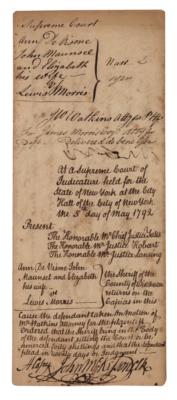 Supreme Court
Ann De Visme
John Maunsel
and Elizabeth
his wife
Lewis Morris
Narr 2
J W Watkins Atty for Plffs
James Morris Atty for
Deft
At a Supreme Court of
Judicature held for the
State of New York at the City
Hall of the City of New York
the 5th day of May 1792
Present
The Honorable Mr Chief Justice Yates
The Honorable Mr Justice Hobart
The Honorable Mr Justice Lansing
Ann De Visme John
Maunsel and Elizabeth
his wife
Lewis Morris
The Sheriff of the
County of
returns on the
Capias in this
Cause the defendant taken On motion of
Mr Watkins Attorney for the plaintiffs
Ordered that the Sheriff bring in the Body
of the defendant sitting the Court or be
amerced forty shillings and that he
plead in twenty days or Judgment
A Copy